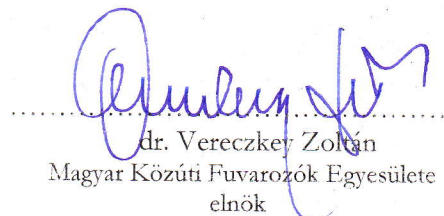 dr. Vereczkey Zoltán
Magyar Közúti Fuvarozók Egyesülete
elnök